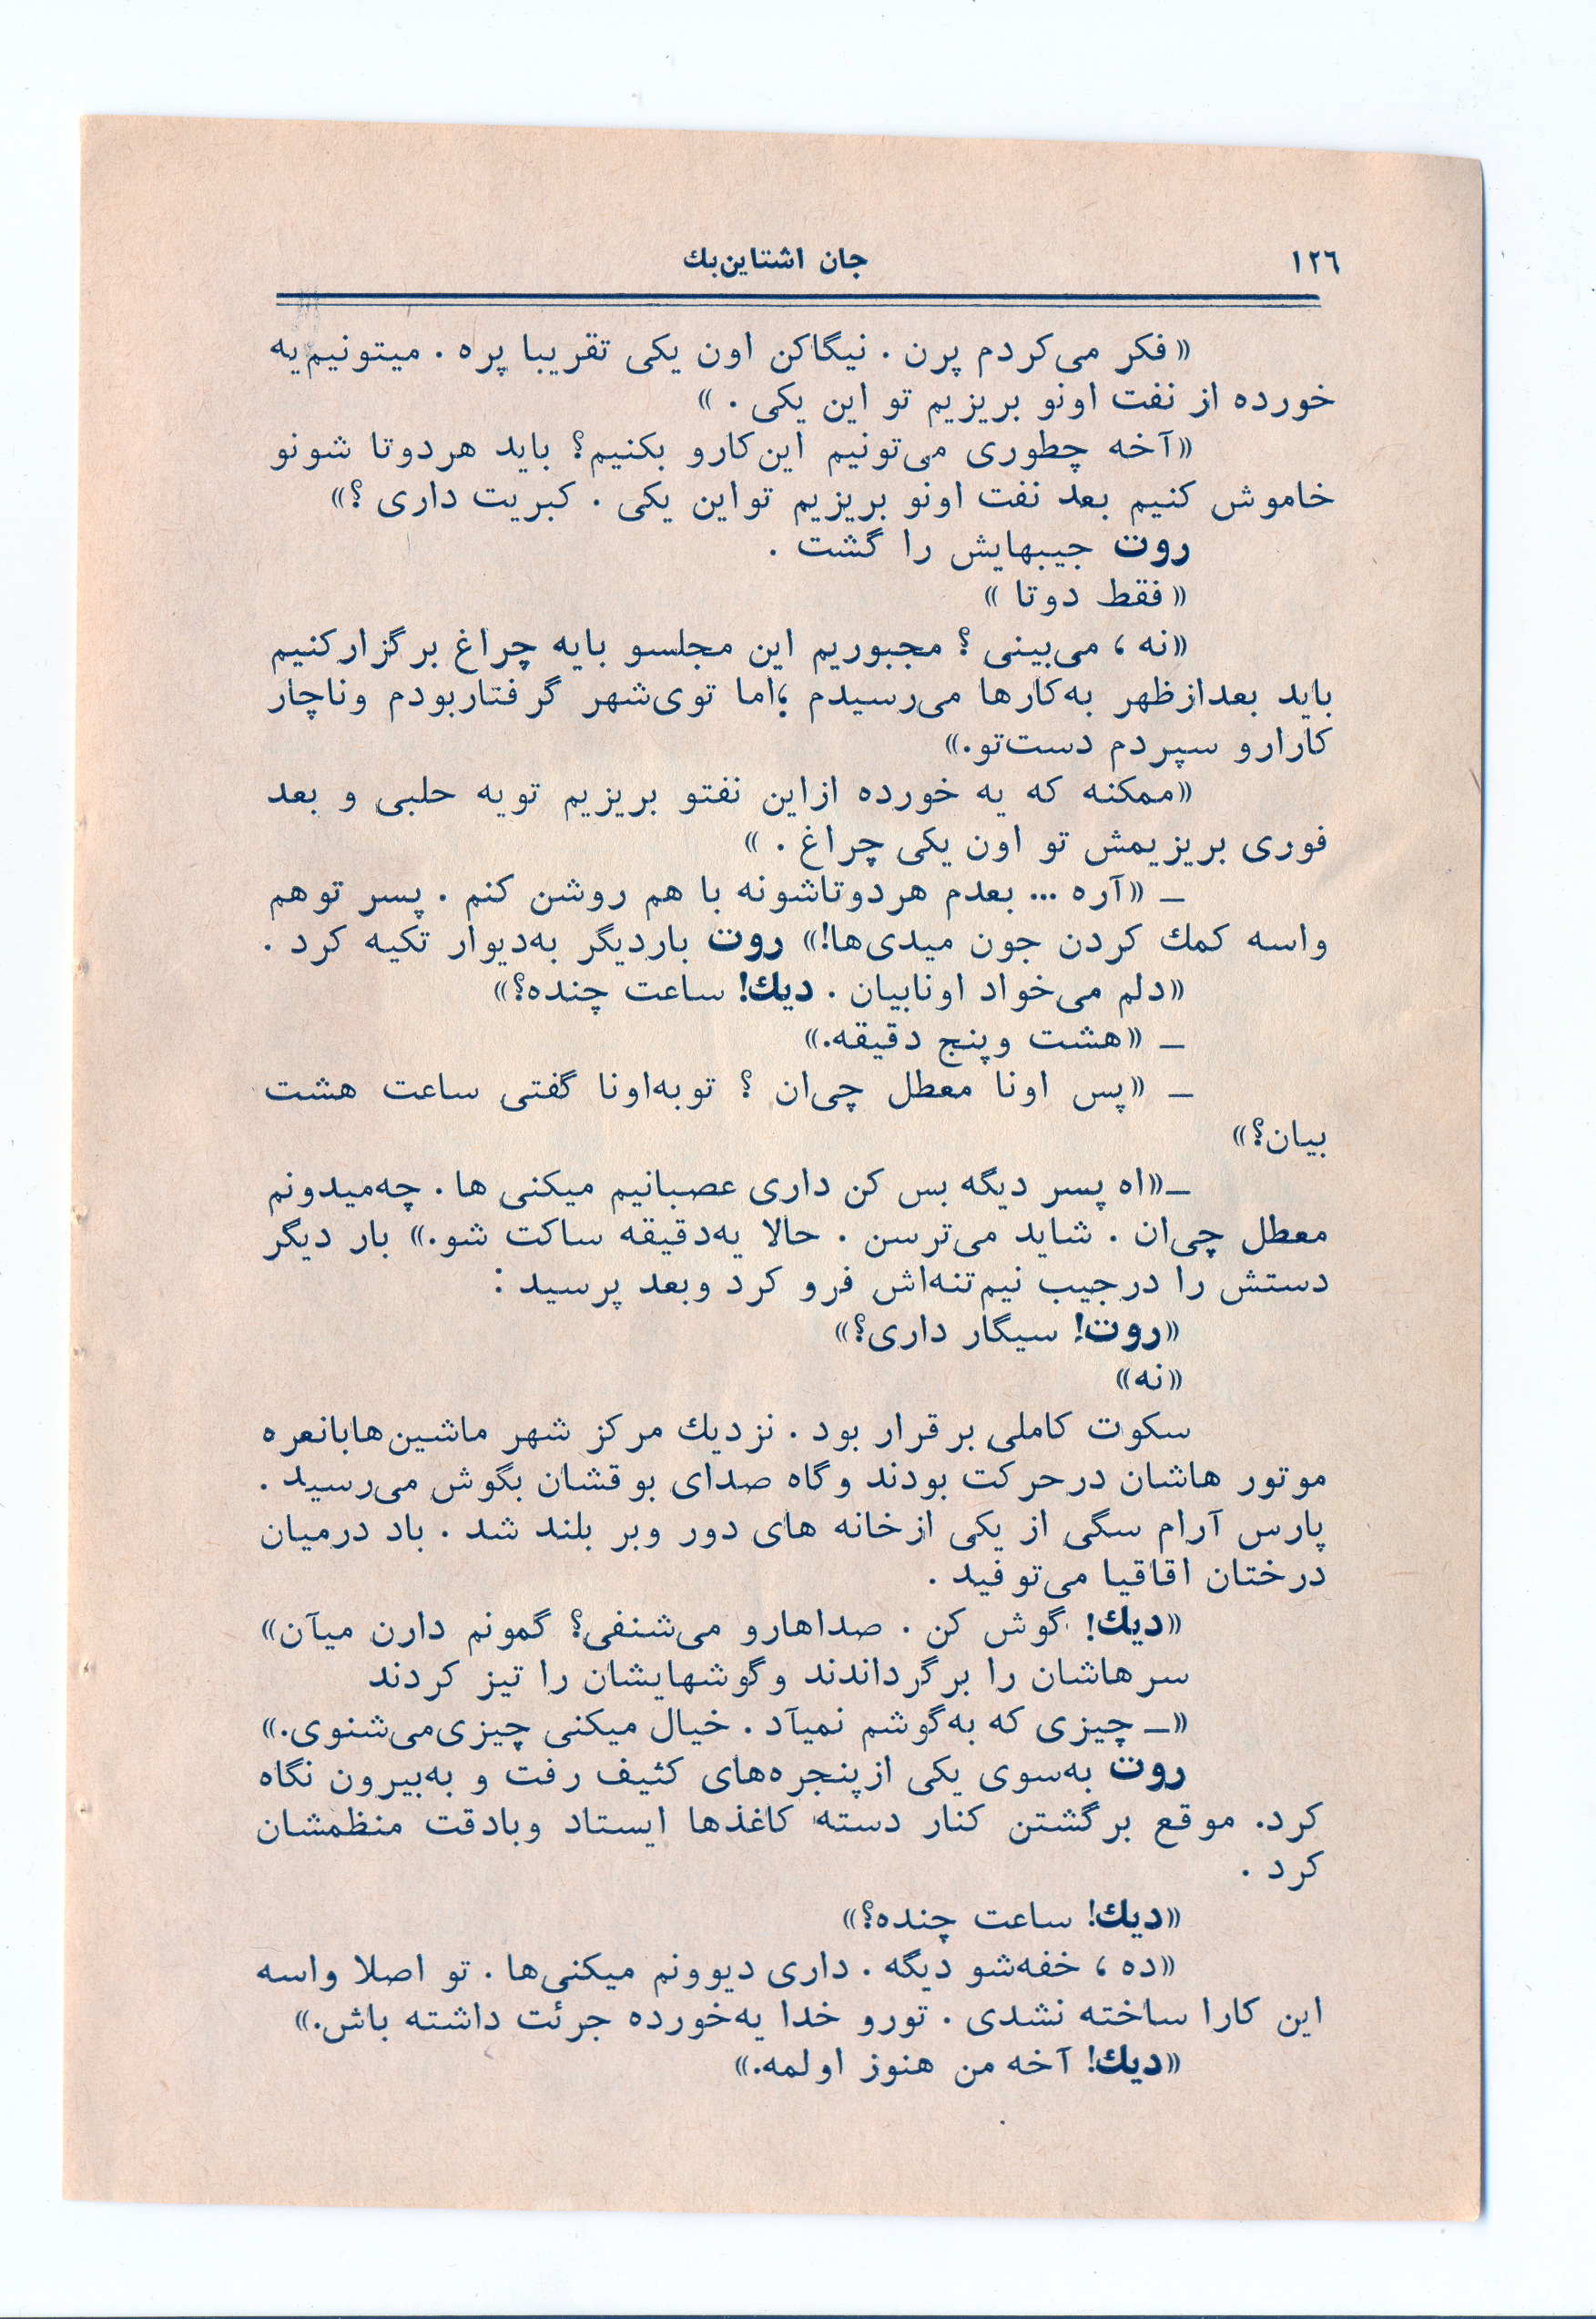 ۱۲۶
جان اشتاین‌بك
«فکر می‌کردم پرن . نیگاکن اون یکی تقریبا پره . میتونیم‌یه
خورده از نفت اونو بریزیم تو این یکی . »
«آخه چطوری می‌تونیم این‌کارو بکنیم؟ باید هردوتا شونو
خاموش کنیم بعد نفت اونو بریزیم تواین یکی . کبریت داری ؟»
روت جیبهایش را گشت .
«فقط دوتا »
«نه ، می‌بینی ؟ مجبوریم این مجلسو بایه چراغ برگزارکنیم
باید بعدازظهر به‌کارها می‌رسیدم ؛اما توی‌شهر گرفتاربودم وناچار
کارارو سپردم دست‌تو.»
«ممکنه که یه خورده ازاین نفتو بریزیم تویه حلبی و بعد
فوری بریزیمش تو اون یکی چراغ . »
ـ «آره ... بعدم هردوتاشونه با هم روشن کنم . پسر توهم
واسه کمك کردن جون میدی‌ها!» روت باردیگر به‌دیوار تکیه کرد .
«دلم می‌خواد اونابیان . دیك! ساعت چنده؟»
ـ «هشت وپنج دقیقه.»
ـ «پس اونا معطل چی‌ان ؟ توبه‌اونا گفتی ساعت هشت
بیان؟»
ـ«اه پسر دیگه بس کن داری عصبانیم میکنی ها . چه‌میدونم
معطل چی‌ان . شاید می‌ترسن . حالا یه‌دقیقه ساکت شو.» بار دیگر
دستش را درجیب نیم‌تنه‌اش فرو کرد وبعد پرسید :
«روت! سیگار داری؟»
«نه»
سکوت کاملی برقرار بود . نزدیك مرکز شهر ماشین‌هابانعره
موتور هاشان درحرکت بودند وگاه صدای بوقشان بگوش می‌رسید .
پارس آرام سگی از یکی ازخانه های دور وبر بلند شد . باد درمیان
درختان اقاقیا می‌توفید .
«دیك! گوش کن . صداهارو می‌شنفی؟ گمونم دارن میآن»
سرهاشان را برگرداندند وگوشهایشان را تیز کردند
«ـ چیزی که به‌گوشم نمیآد . خیال میکنی چیزی‌می‌شنوی.»
روت به‌سوی یکی ازپنجره‌های کثیف رفت و به‌بیرون نگاه
کرد. موقع برگشتن کنار دسته کاغذها ایستاد وبادقت منظمشان
کرد .
«دیك! ساعت چنده؟»
«ده ، خفه‌شو دیگه . داری دیوونم میکنی‌ها . تو اصلا واسه
این کارا ساخته نشدی . تورو خدا یه‌خورده جرئت داشته باش.»
«دیك! آخه من هنوز اولمه.»